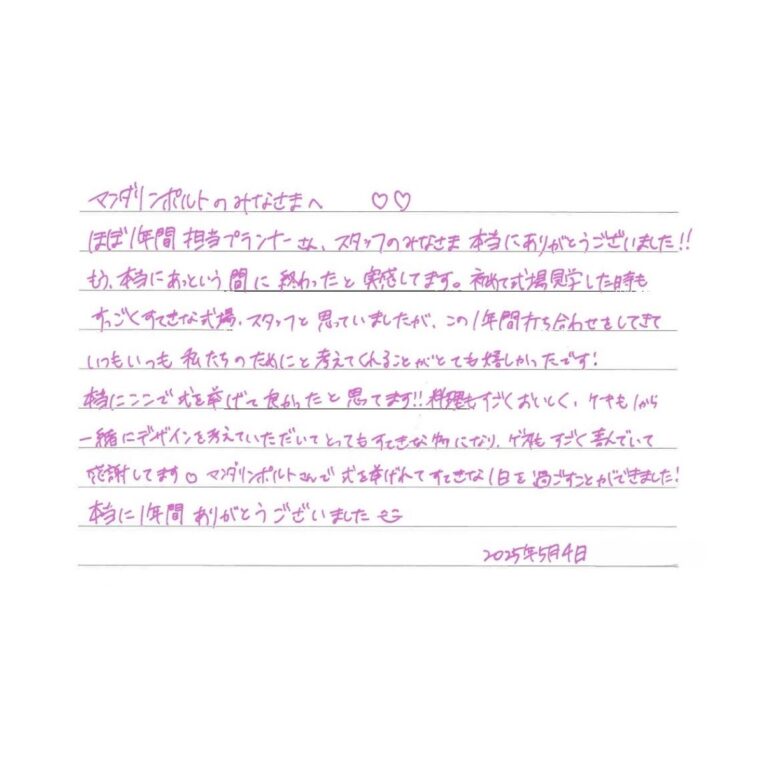 マンダリンポルトのみなさまへ ♡♡
ほぼ1年間 担当プランナーさん、スタッフのみなさま 本当にありがとうございました!!
もう、本当にあっという間に 終わったと 実感してます。初めて式場見学した時も
すっごくすてきな式場、スタッフと 思っていましたが、この1年間打ち合わせをしてきて
いつもいつも 私たちのためにと 考えてくれることがとても嬉しかったです!
本当にここで 式を挙げて良かったと 思てます!! 料理もすごくおいしく、ケーキも1から
一緒にデザインを考えていただいてとってもすてきな物になり、ゲストも すごく喜んでいて
感謝してます。マンダリンポルトさんで 式を挙げれてすてきな1日を 過ごすことができました!
本当に1年間 ありがとうございました
2025年5月4日